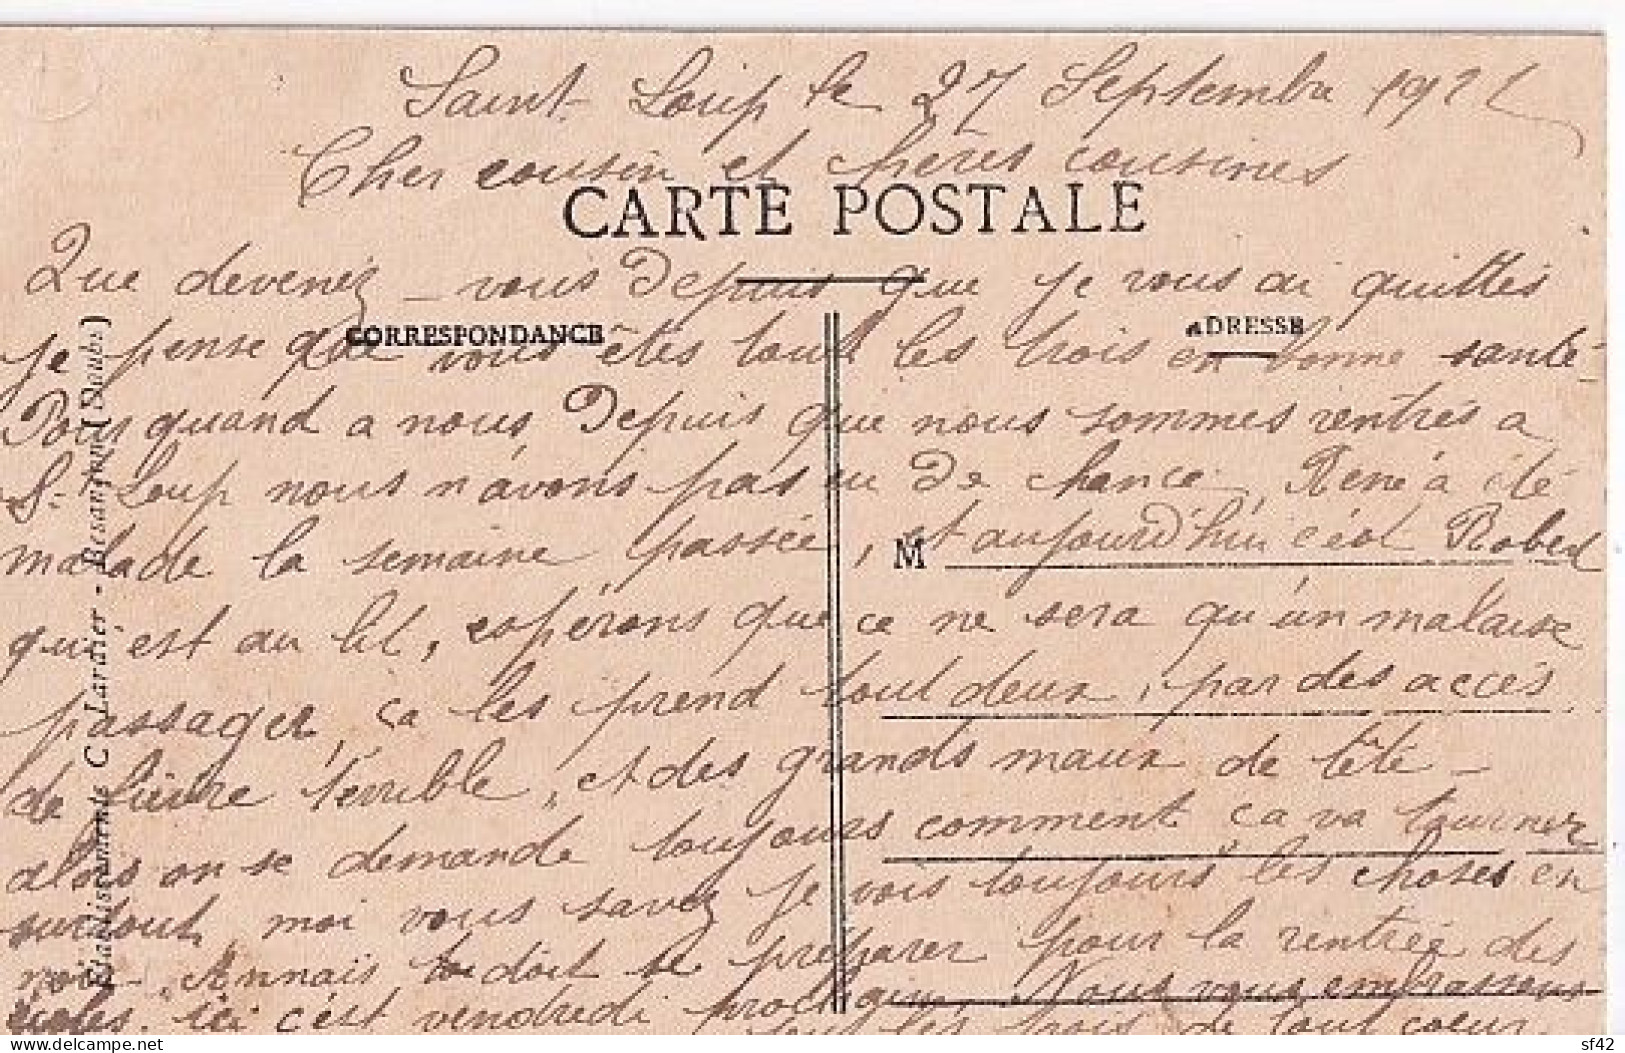 Saint-Loup le 27 Septembre 192
Cher cousin et chères cousines
CARTE POSTALE
Que devenez-vous Depuis que je vous ai quittés
CORRESPONDANCE
ADRESSE
je pense que vous êtes tout les trois en bonne santé-
Pour quand a nous Depuis que nous sommes rentrés a
S-Loup nous n'avons pas eu De chance, René a été
malade la semaine passée, et aujourd'hui c'est Robert
M
qui est au lit, espérons que ce ne sera qu'un malaise
passager, ça les prend tout deux, par des accès
de fièvre terrible, et des grands maux de tête-
alors on se demande toujours comment ça va tourner
surtout moi vous savez je vois toujours les choses en
noir- Annaïs doit se préparer pour la rentrée des
ici c'est vendredi prochain, Nous vous embrassons
tout les trois de tout coeur
Etablissements C. Lardier - Besançon (Doubs)
delcampe.net
sf42